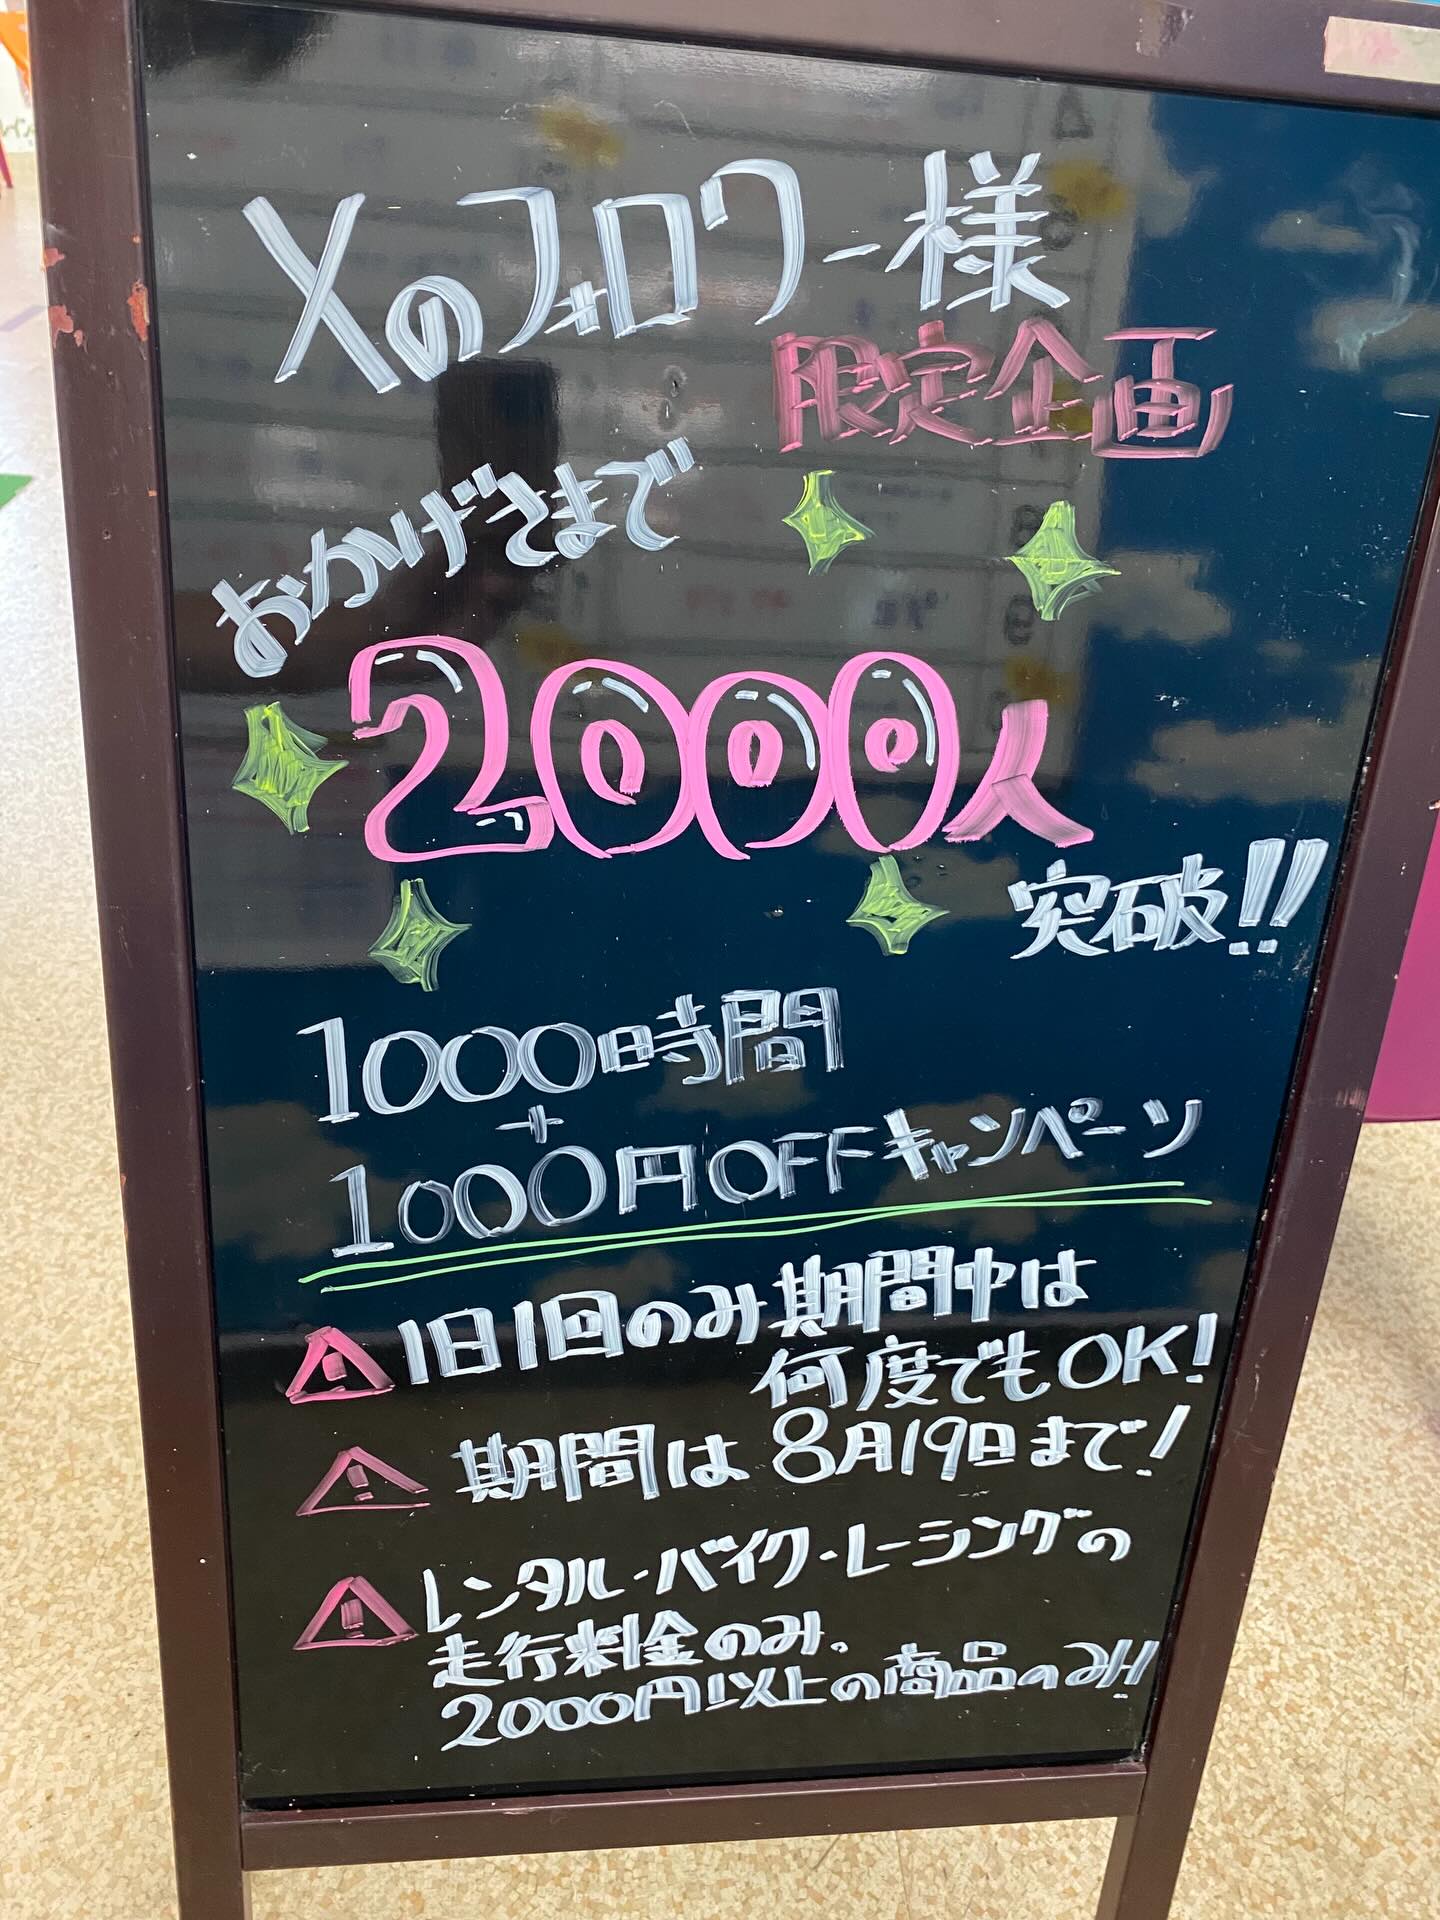 Xのフォロワー様
限定企画
おかげさまで
2000人
突破!!
1000時間
+
1000円OFFキャンペーン
1日1回のみ期間中は
何度でもOK!
期間は8月19日まで!
レンタル・バイク・レーシングの
走行料金のみ、
2000円以上の商品のみ!!